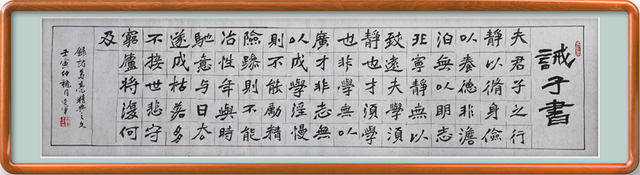 誡子書
夫君子之行
靜以脩身儉
以養德非澹
泊無以明志
非寧靜無以
致遠夫學須
靜也才須學
也非學無以
廣才非志無
以成學淫慢
則不能勵精
險躁則不能
冶性年與時
馳意與日去
遂成枯落多
不接世悲守
窮廬將復何
及
錄諸葛亮精典之文
壬寅仲穐月